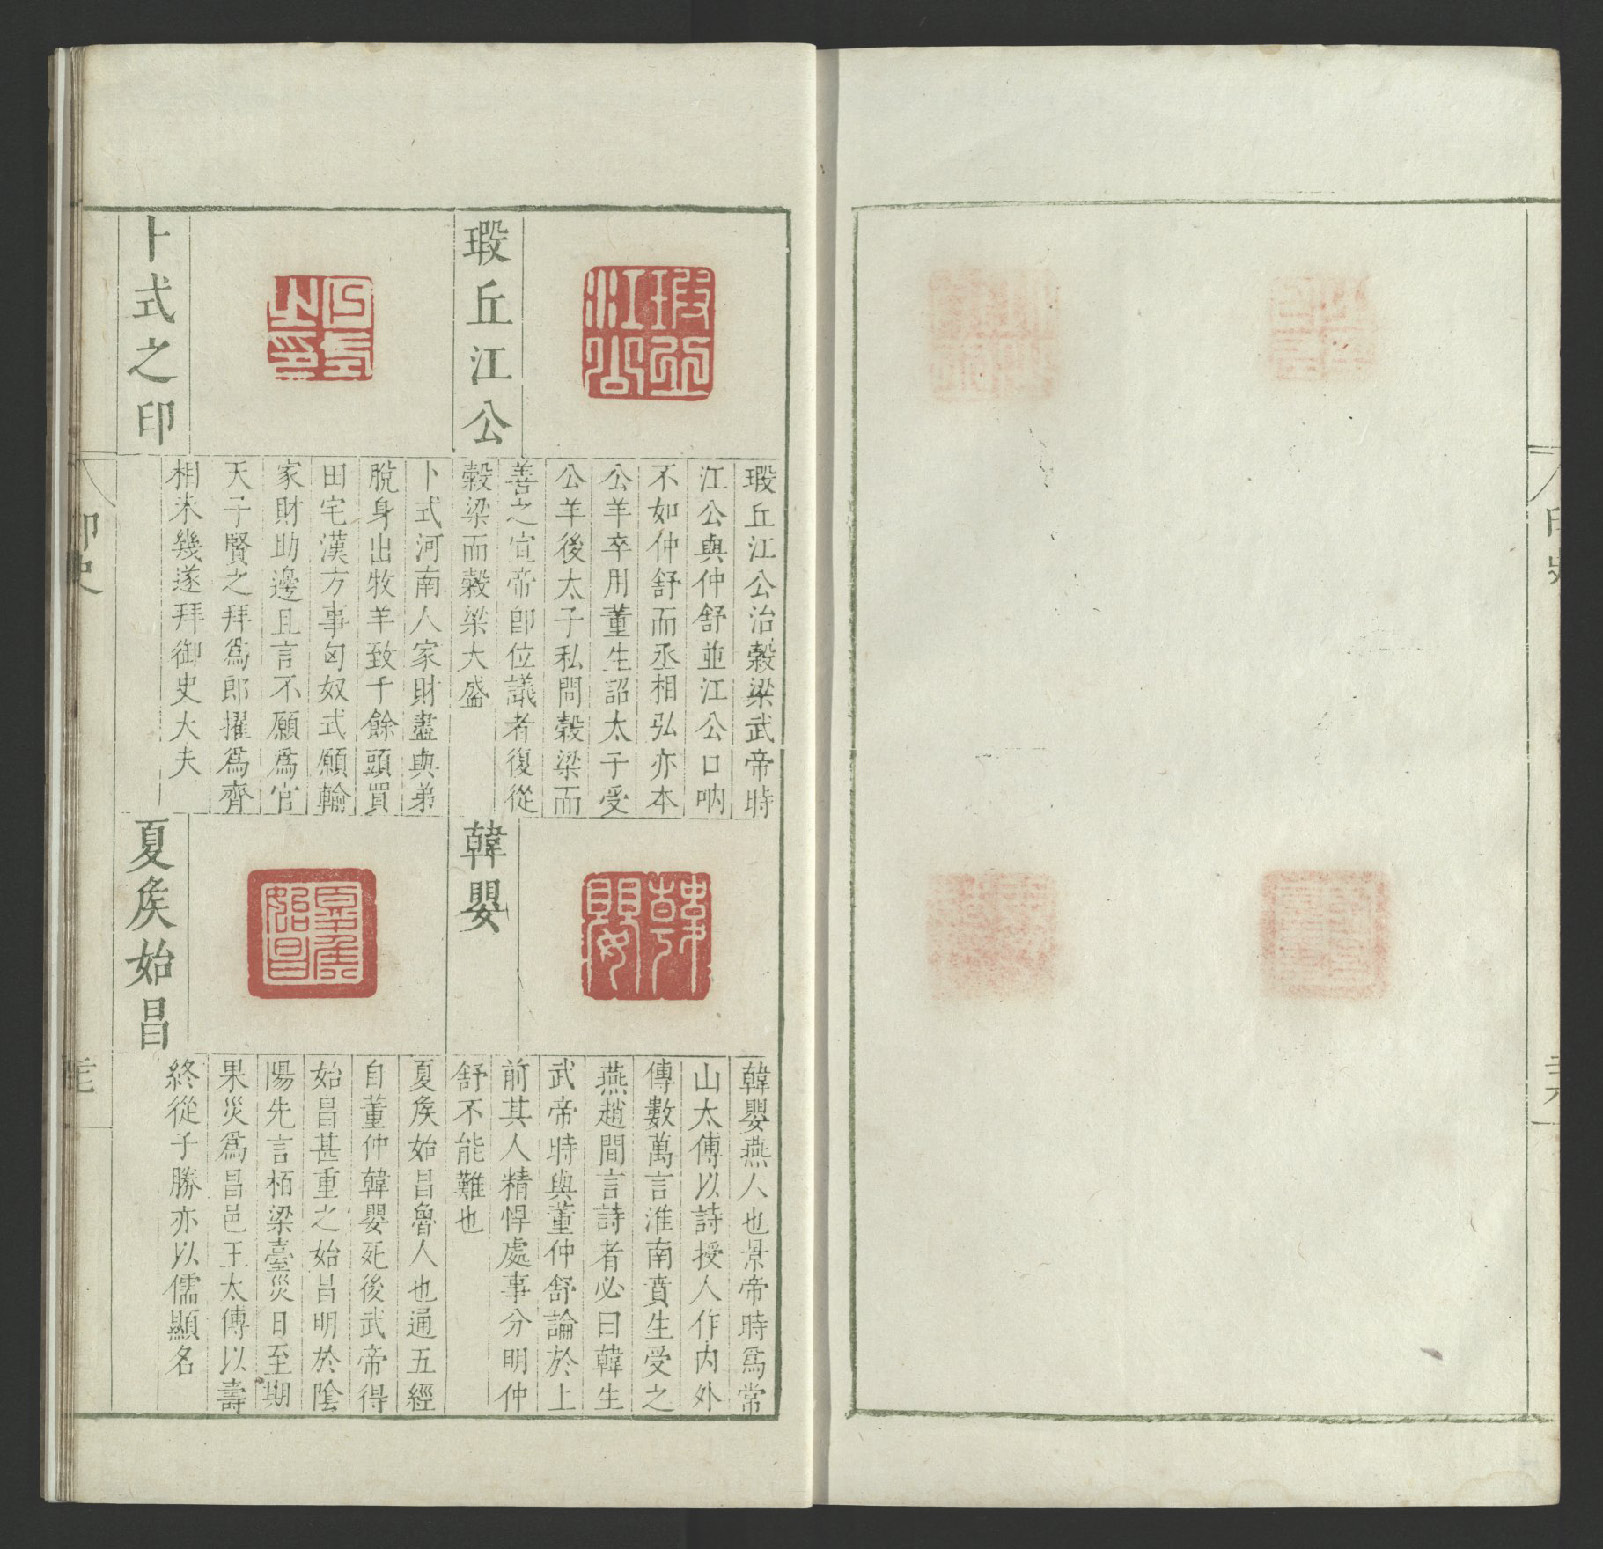 瑕丘江公
瑕丘江公治穀梁武帝時
江公與仲舒並江公口吶
不如仲舒而丞相弘亦本
公羊卒用董生詔太子受
公羊後太子私問穀梁而
善之宣帝卽位議者復從
穀梁而穀梁大盛
卜式之印
卜式河南人家財盡與弟
脫身出牧羊致千餘頭買
田宅漢方事匈奴式願輸
家財助邊且言不願爲官
天子賢之拜爲郎擢爲齊
相未幾遂拜御史大夫
韓嬰
韓嬰燕人也景帝時爲常
山太傅以詩授人作內外
傳數萬言淮南賁生受之
燕趙間言詩者必曰韓生
武帝時與董仲舒論於上
前其人精悍處事分明仲
舒不能難也
夏侯始昌
夏侯始昌魯人也通五經
自董仲韓嬰死後武帝得
始昌甚重之始昌明於陰
陽先言栢梁臺災日至期
果災爲昌邑王太傅以壽
終從子勝亦以儒顯名
印史